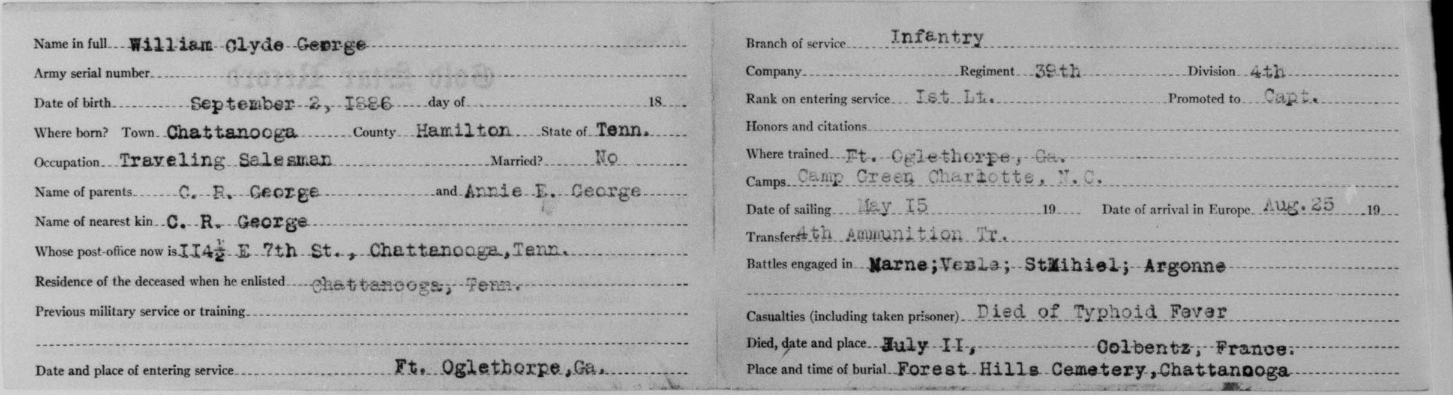 Name in full William Clyde George
Army serial number
Date of birth September 2, I886 day of 18
Where born? Town Chattanooga County Hamilton State of Tenn.
Occupation Traveling Salesman Married? No
Name of parents C. R. George and Annie E. George
Name of nearest kin C. R. George
Whose post-office now is II4½ E 7th St., Chattanooga, Tenn.
Residence of the deceased when he enlisted Chattanooga, Tenn.
Previous military service or training
Date and place of entering service Ft. Oglethorpe, Ga.
Branch of service Infantry
Company Regiment 39th Division 4th
Rank on entering service Ist Lt. Promoted to Capt.
Honors and citations
Where trained Ft. Oglethorpe, Ga.
Camps Camp Green Charlotte, N.C.
Date of sailing May I5 19 Date of arrival in Europe Aug. 25 19
Transfers 4th Ammunition Tr.
Battles engaged in Marne; Vesle; StMihiel; Argonne
Casualties (including taken prisoner) Died of Typhoid Fever
Died, date and place July II, Colbentz, France.
Place and time of burial Forest Hills Cemetery, Chattanooga